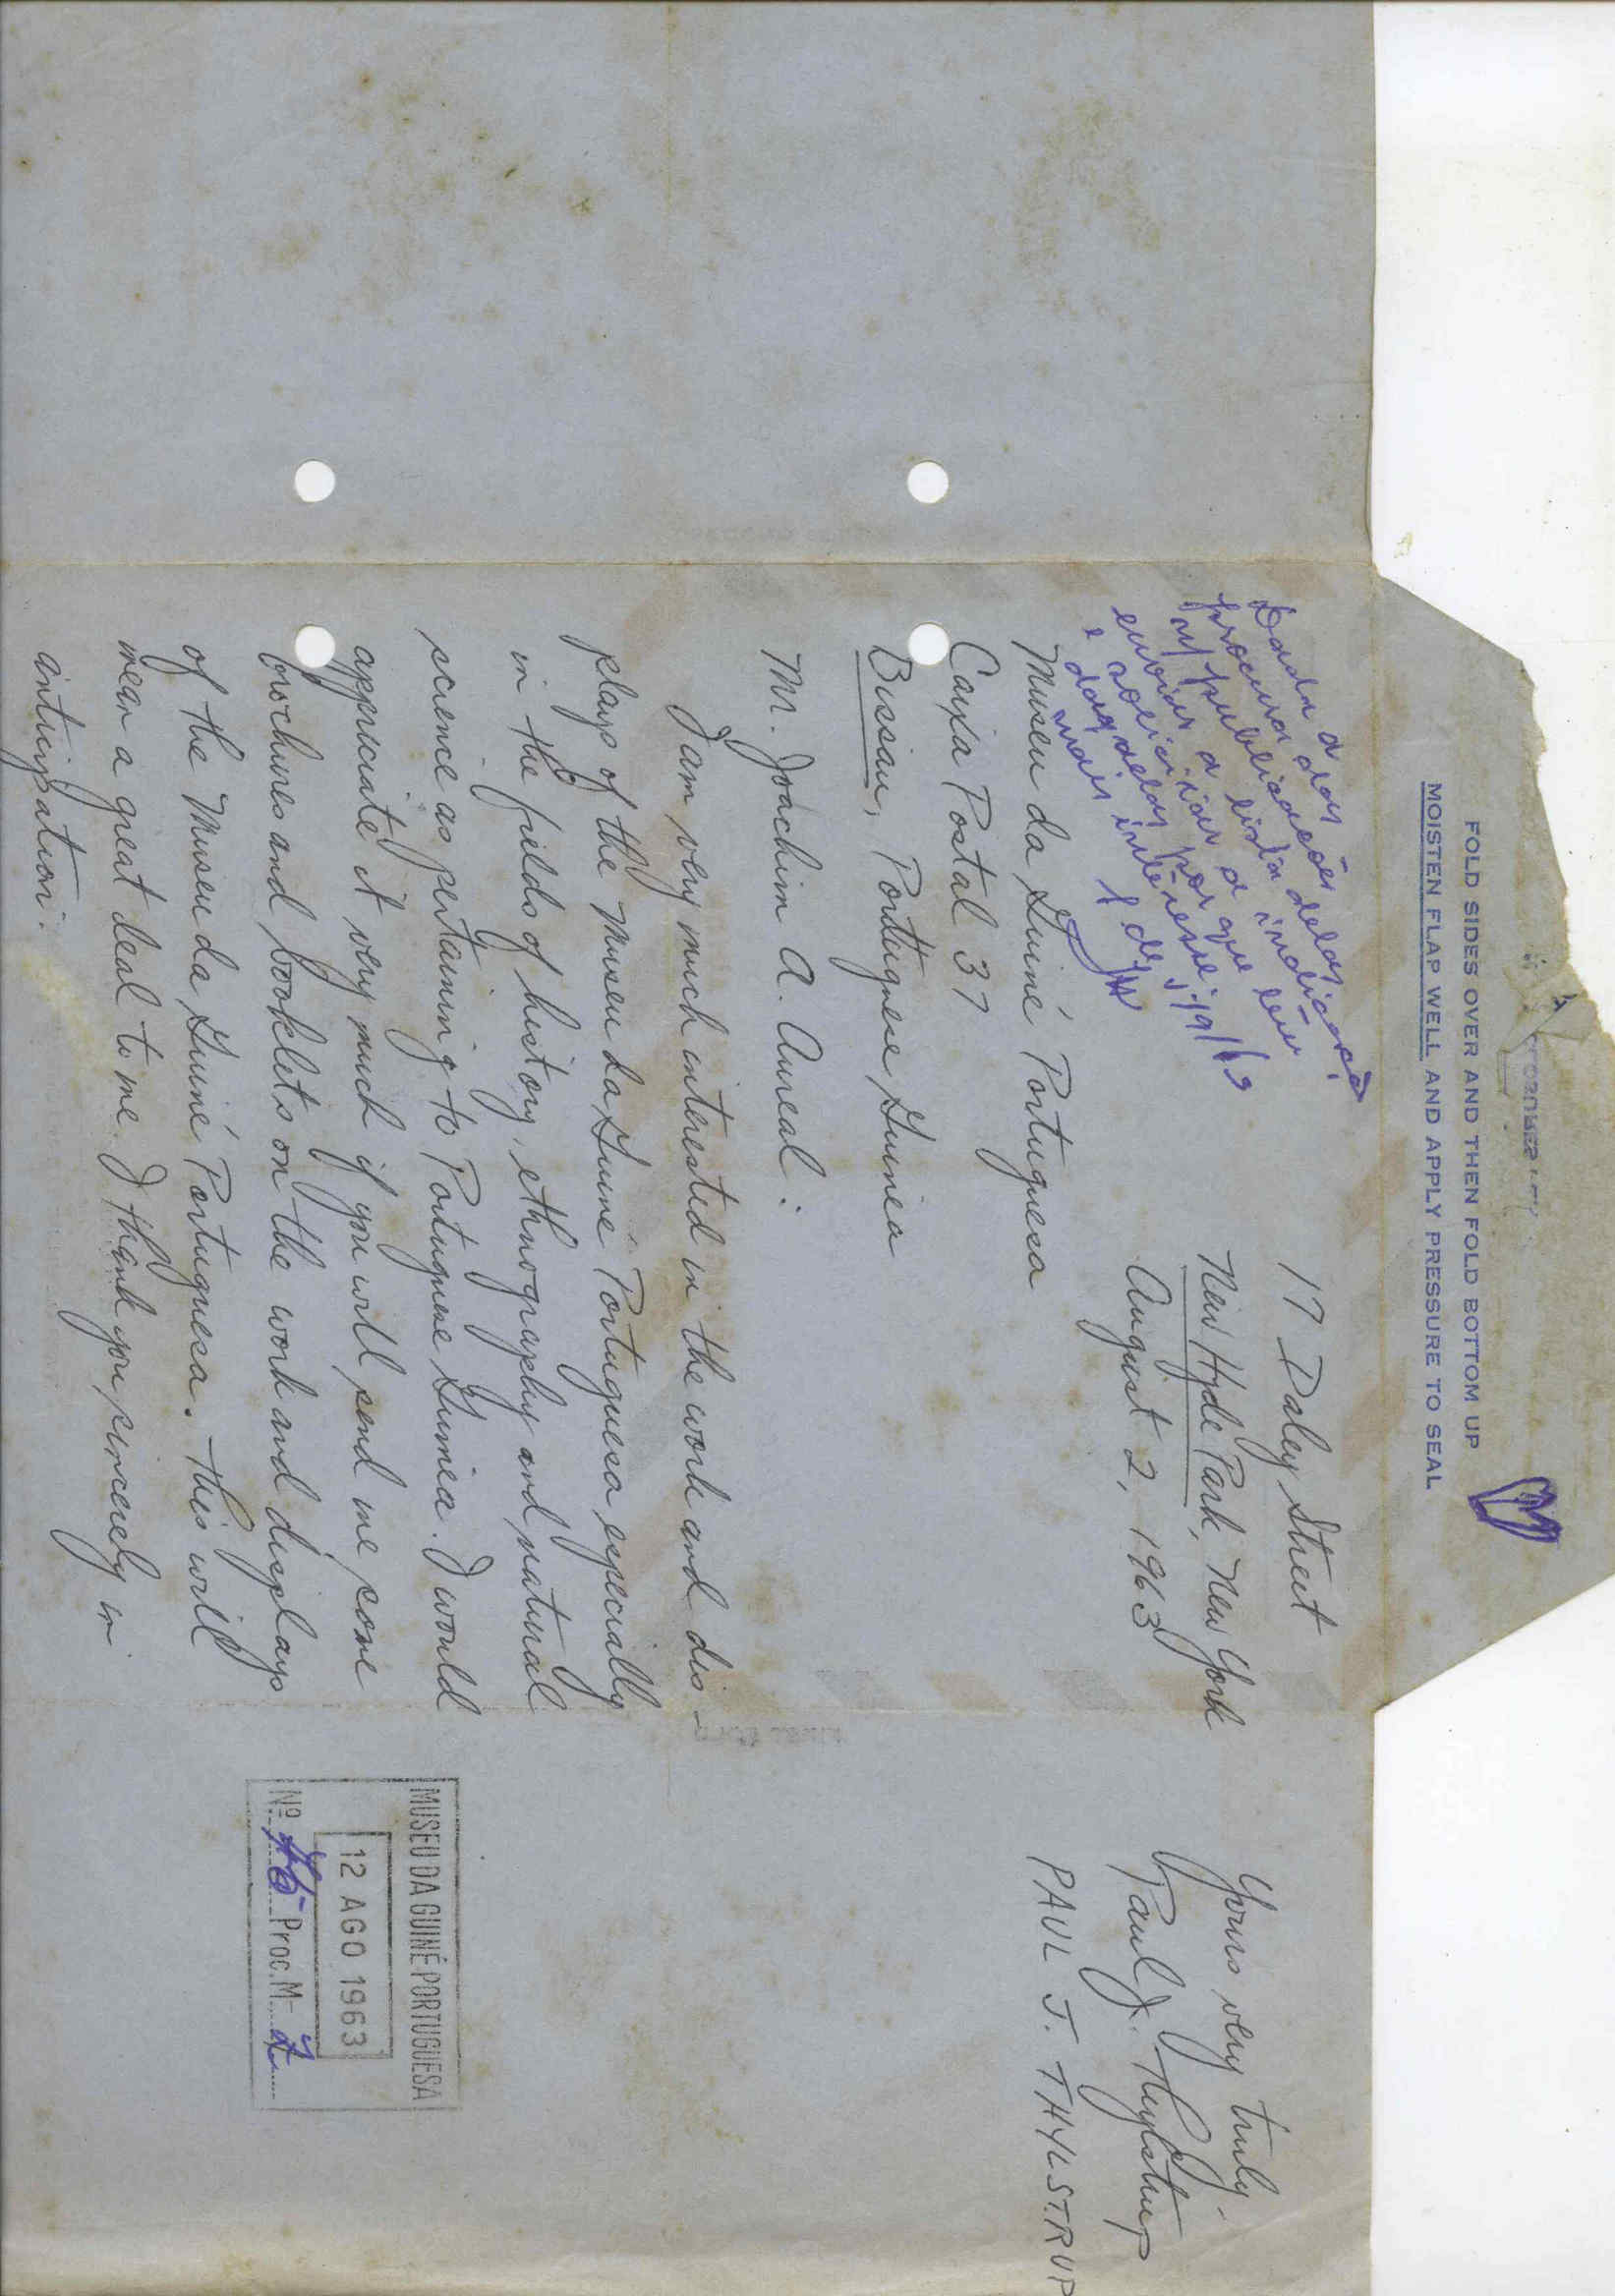 FOLD SIDES OVER AND THEN FOLD BOTTOM UP
MOISTEN FLAP WELL AND APPLY PRESSURE TO SEAL
17 Daley Street
New Hyde Park, New York
August 2, 1963
publicações
enviar a lista
solicitar a
por que
mais interesse
Museu da Guiné Portuguesa
Caixa Postal 37
Bissau, Portuguese Guinea
Mr. Joachim A. Aureal:
I am very much interested in the work and dis-
plays of the Museu da Guiné Portuguesa especially
in the fields of history, ethnography and natural
science as pertaining to Portuguese Guinea. I would
appreciate it very much if you will send me some
brochures and booklets on the work and displays
of the Museu da Guiné Portuguesa. This will
mean a great deal to me. I thank you sincerely in
anticipation.
Yours very truly
Paul J. Thylstrup
PAUL J. THYLSTRUP
MUSEU DA GUINÉ PORTUGUESA
12 AGO 1963
Nº Proc. M-